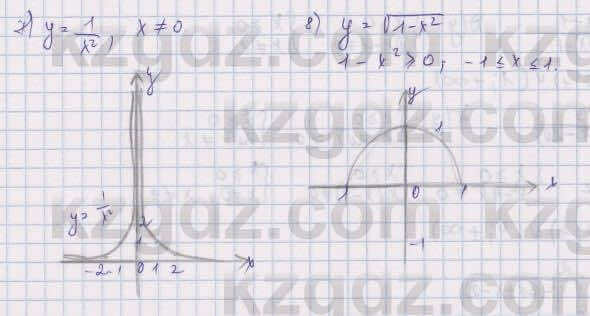 7) y = 1/x², x ≠ 0
y
y = 1/x²
2
1
-2 -1 0 1 2 x
8) y = √1-x²
1 - x² ≥ 0; -1 ≤ x ≤ 1.
y
1
-1 0 1 x
-1
kzgdz.com
kzgdz.com
kzgdz.com
kzgdz.com
kzgdz.com
kzgdz.com